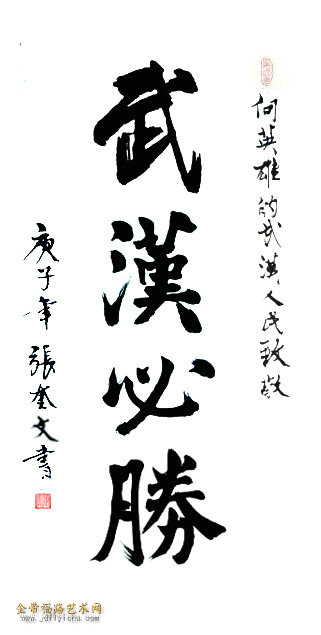 向英雄的武漢人民致敬
武漢必勝
庚子年 張奎文書
金带福路艺术网
www.jdflyishu.com